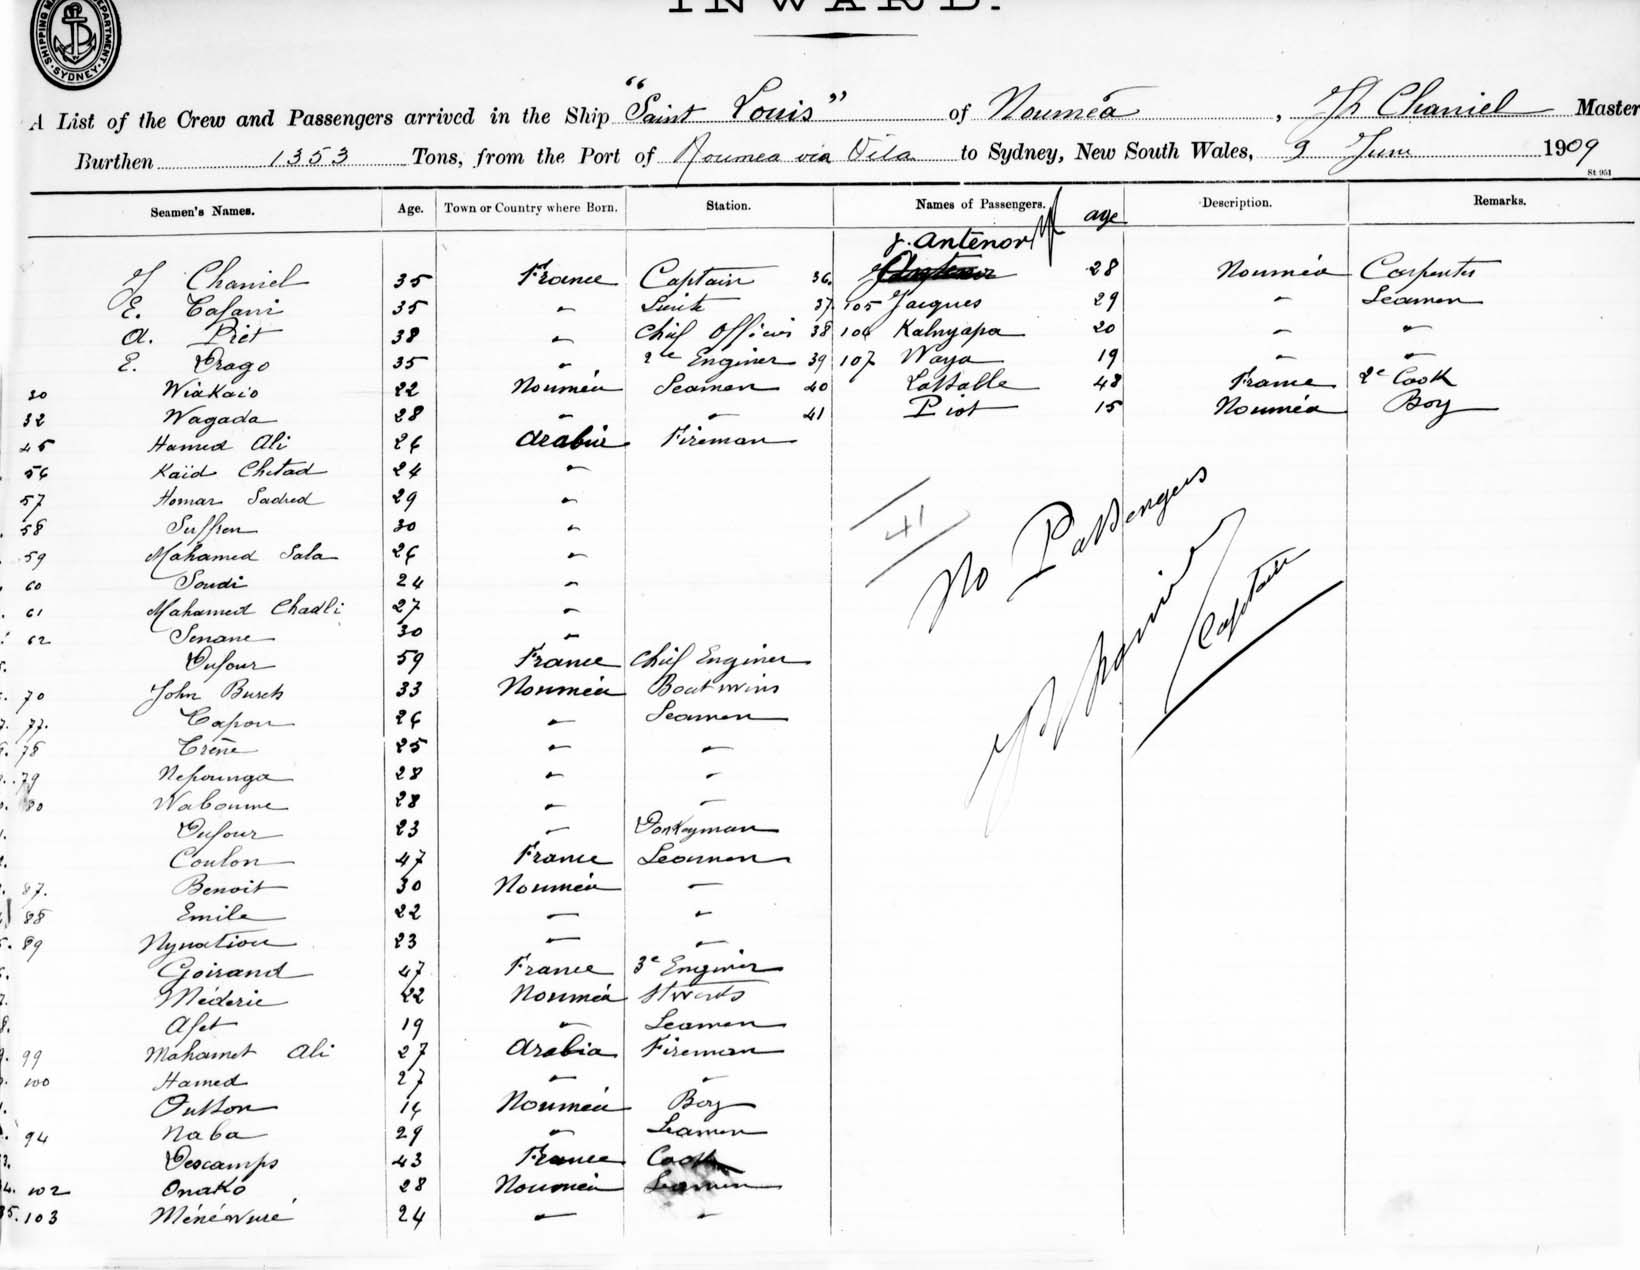 SHIPPING DEPARTMENT. SYDNEY.
INWARD.
A List of the Crew and Passengers arrived in the Ship "Saint Louis" of Nouméa, Chaniel Master
Burthen 1353 Tons, from the Port of Noumea via Vila to Sydney, New South Wales, 9 June 1909
St 951
Seamen's Names. Age. Town or Country where Born. Station. Names of Passengers. age Description. Remarks.
J. Antenor
J Chaniel 35 France Captain 36. 28 Nouméa Carpenter
E. Cafani 35 " Lieut 37. 105 Jacques 29 " Seamen
A. Piét 38 " Chief Officier 38 106 Kalnyapa 20 " "
E. Drago 35 " 2e Enginer 39 107 Waya 19 " "
30 Wiakaio 22 Nouméa Seamen 40 Lassalle 48 France 2e Cook
32 Wagada 28 " " 41 Piot 15 Nouméa Boy
45 Hamed Ali 26 Arabia Fireman
56 Kaïd Chetad 24 "
57 Homar Sadred 29 "
58 Suffren 30 "
59 Mahamed Sala 26 "
60 Soudi 24 "
61 Mahamed Chadli 27 "
62 Senane 30 "
Dufour 59 France Chief Enginer
70 John Burch 33 Nouméa Boatswins
77. Capou 26 " Seamen
78 Crène 25 " "
79 Nepounga 28 " "
80 Waboume 28 " "
Dufour 23 " Donkeyman
Coulon 47 France Seamen
87. Benoit 30 Nouméa "
88 Emile 22 " "
89 Nynation 23 " "
Goirand 47 France 3e Enginer
Méderic 22 Nouméa Stwards
Afet 19 " Seamen
99 Mahamet Ali 27 Arabia Fireman
100 Hamed 27 " "
Outson 16 Nouméa Boy
94 Naba 29 " Seamen
Descamps 43 France Cook
102 Onako 28 Nouméa Seamen
35. 103 Ménéwuré 24 " "
41
No Passengers
Chaniel
Captain